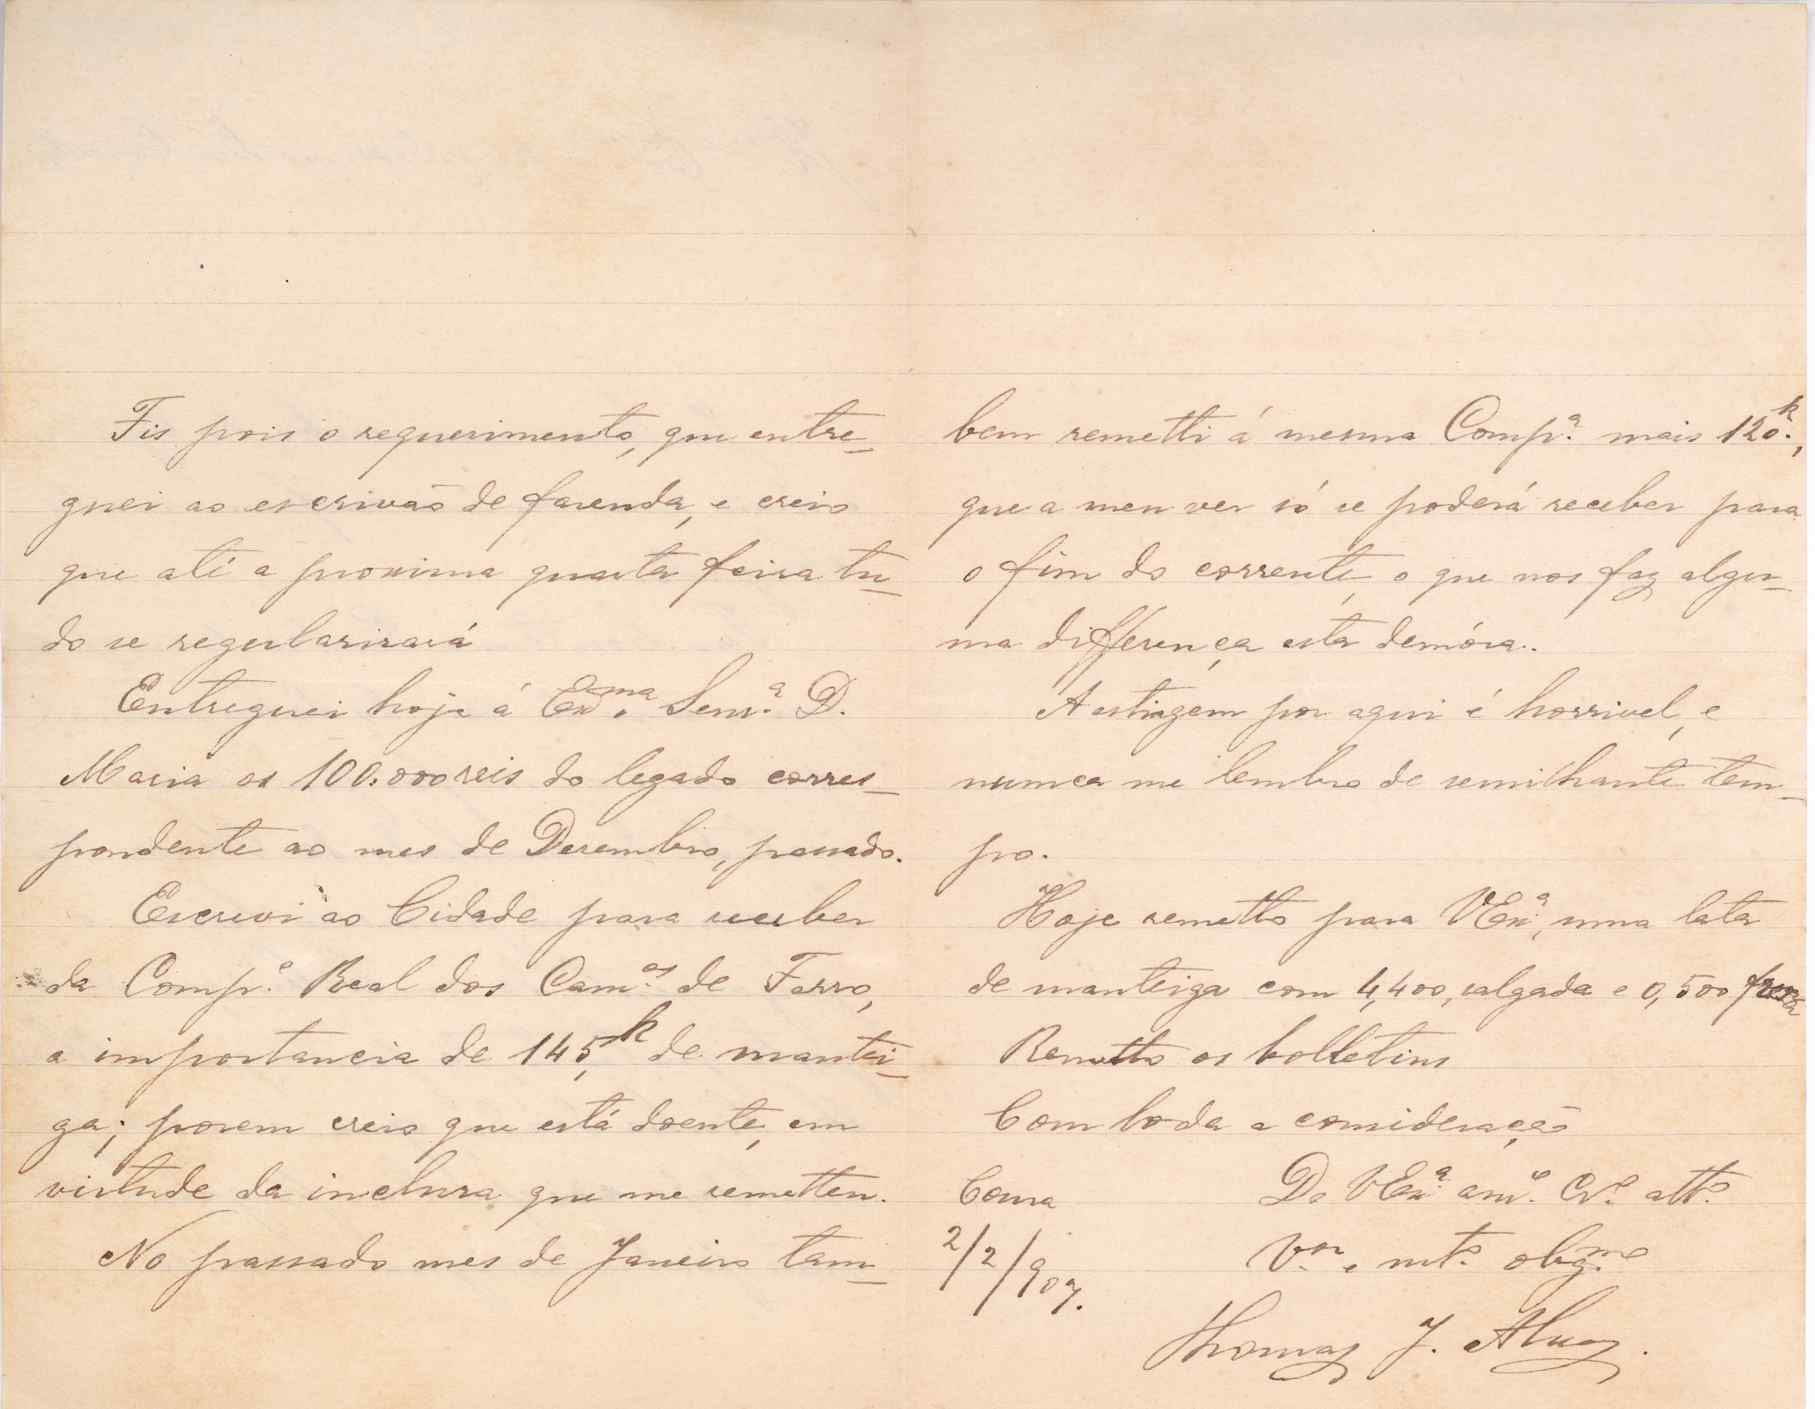 Fis pois o requerimento, que entre-
guei ao escrivão de fasenda, e creio
que até a proxima quarta feira tu-
do se regularisará
Entreguei hoje á Exma. Senra. D.
Maria os 100.000 reis do legado corres-
pondente ao mes de Desembro, passado.
Escrevi ao Cidade para receber
da Compa. Real dos Camos. de Ferro,
a importancia de 145,k de mantei-
ga; porem creio que está doente, em
virtude da inclusa que me remetteu.
No passado mes de Janeiro tam-
bem remetti á mesma Compa. mais 120.k,
que a meu ver só se poderá receber para
o fim do corrente, o que nos faz algu-
ma differença esta demóra.
A estiagem por aqui é horrivel, e
nunca me lembro de semilhante tem-
po.
Hoje remetto para VExa., uma lata
de manteiga com 4,400, salgada e 0,500 fresca
Remetto os bolletins
Com toda a consideração
Coura
De VExa. amo. Cro. atto.
2/2/907.
Vor. e mto. obgmo.
Thomaz J. Alves.